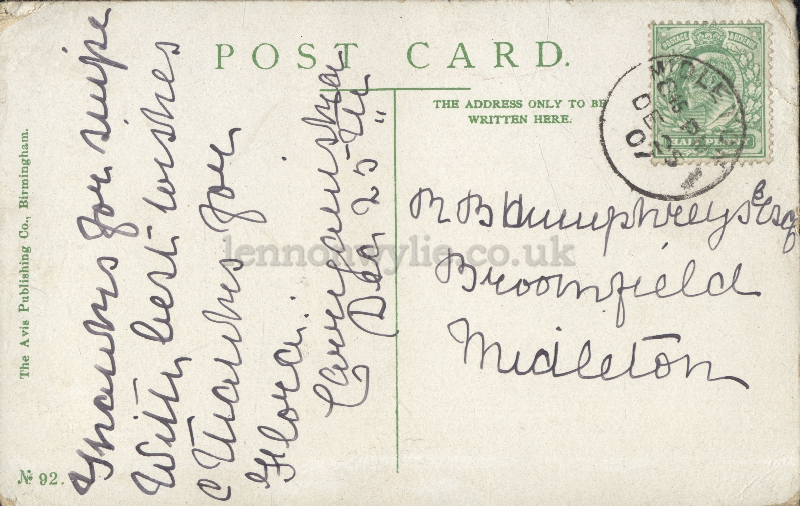 POST CARD.
THE ADDRESS ONLY TO BE
WRITTEN HERE.
POSTAGE REVENUE
HALF PENNY
MIDLETON
DE 25
07
R B Humphreys Esq
Broomfield
Midleton
Thanks for
With best wishes
& thanks for
Flora.
Dec 25th
The Avis Publishing Co., Birmingham.
№ 92.
lennonwylie.co.uk